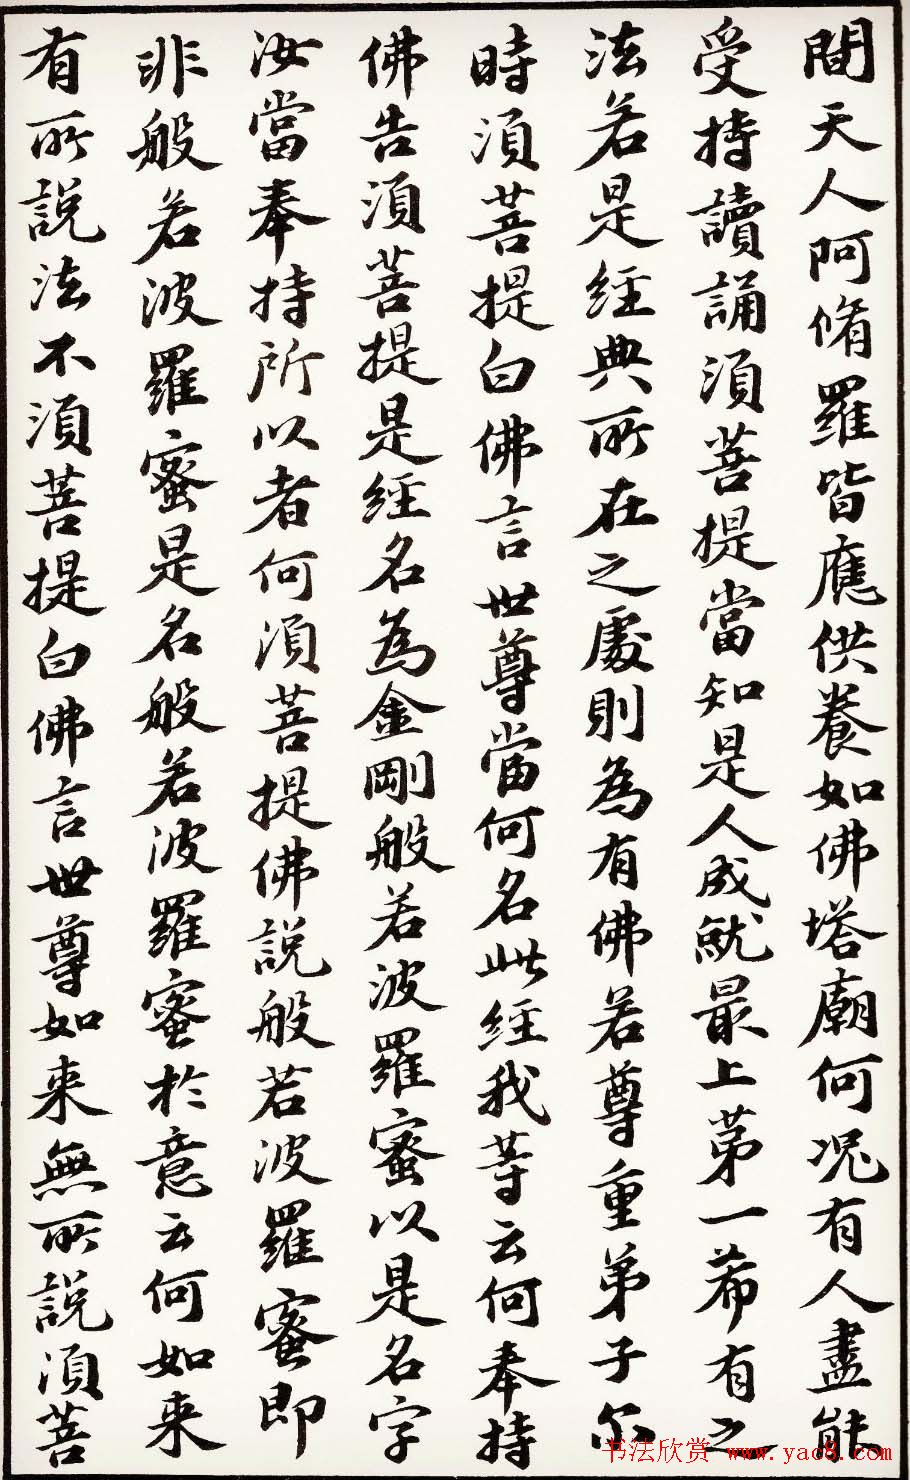 間天人阿脩羅皆應供養如佛塔廟何况有人盡能
受持讀誦須菩提當知是人成就最上苐一希有之
法若是經典所在之處則為有佛若尊重弟子尒
時須菩提白佛言世尊當何名此經我等云何奉持
佛告須菩提是經名為金剛般若波羅蜜以是名字
汝當奉持所以者何須菩提佛說般若波羅蜜即
非般若波羅蜜是名般若波羅蜜於意云何如来
有所說法不須菩提白佛言世尊如来無所說須菩
书法欣赏 www.yac8.com